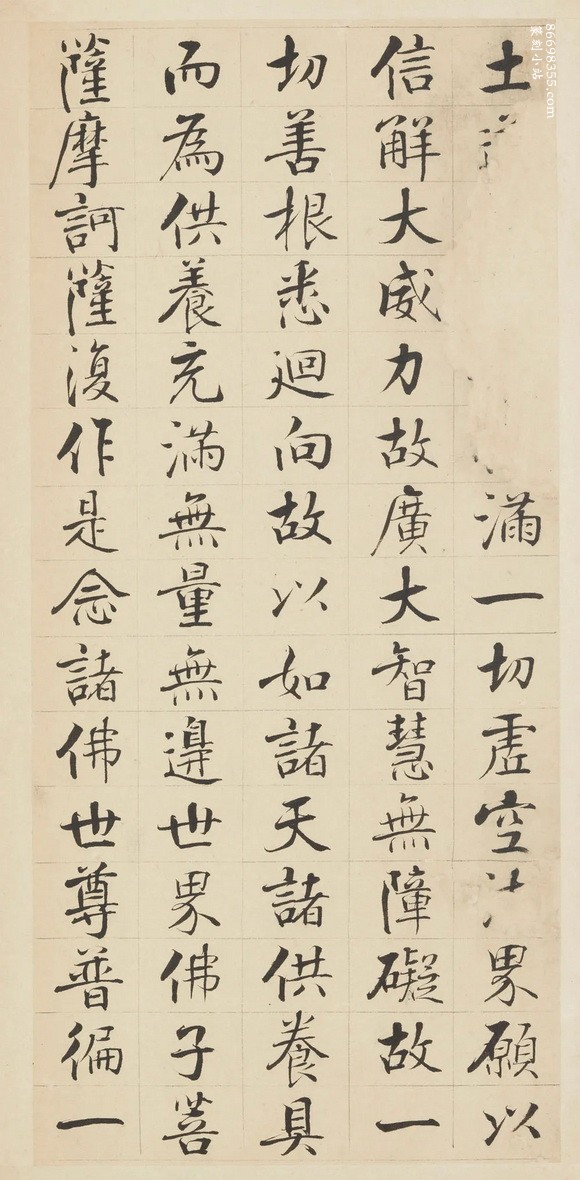 土滿一切虛空界願以
信解大威力故廣大智慧無障礙故一
切善根悉迴向故以如諸天諸供養具
而為供養充滿無量無邊世界佛子菩
薩摩訶薩復作是念諸佛世尊普徧一
86698355.com
篆刻小站